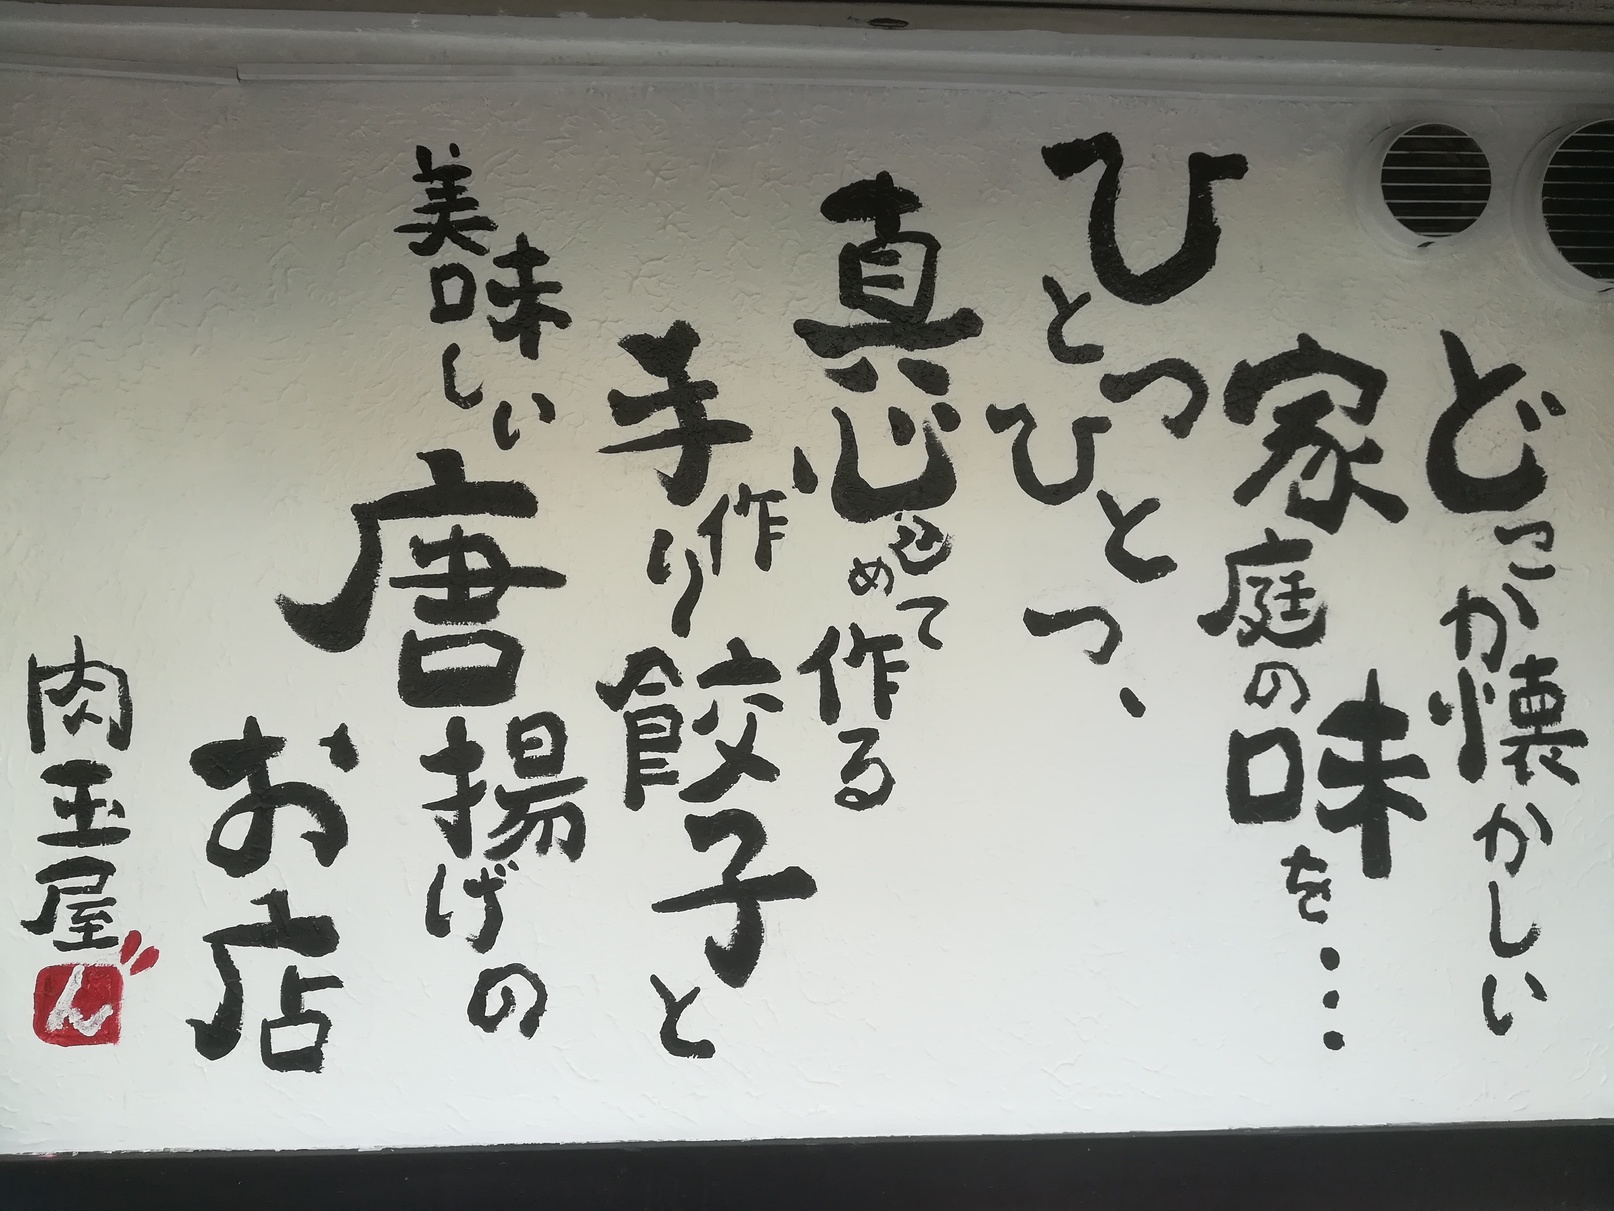 どこか懐かしい
家庭の味を…
ひとつひとつ、
真心込めて作る
手作り餃子と
美味しい唐揚げの
お店
肉玉屋
ん